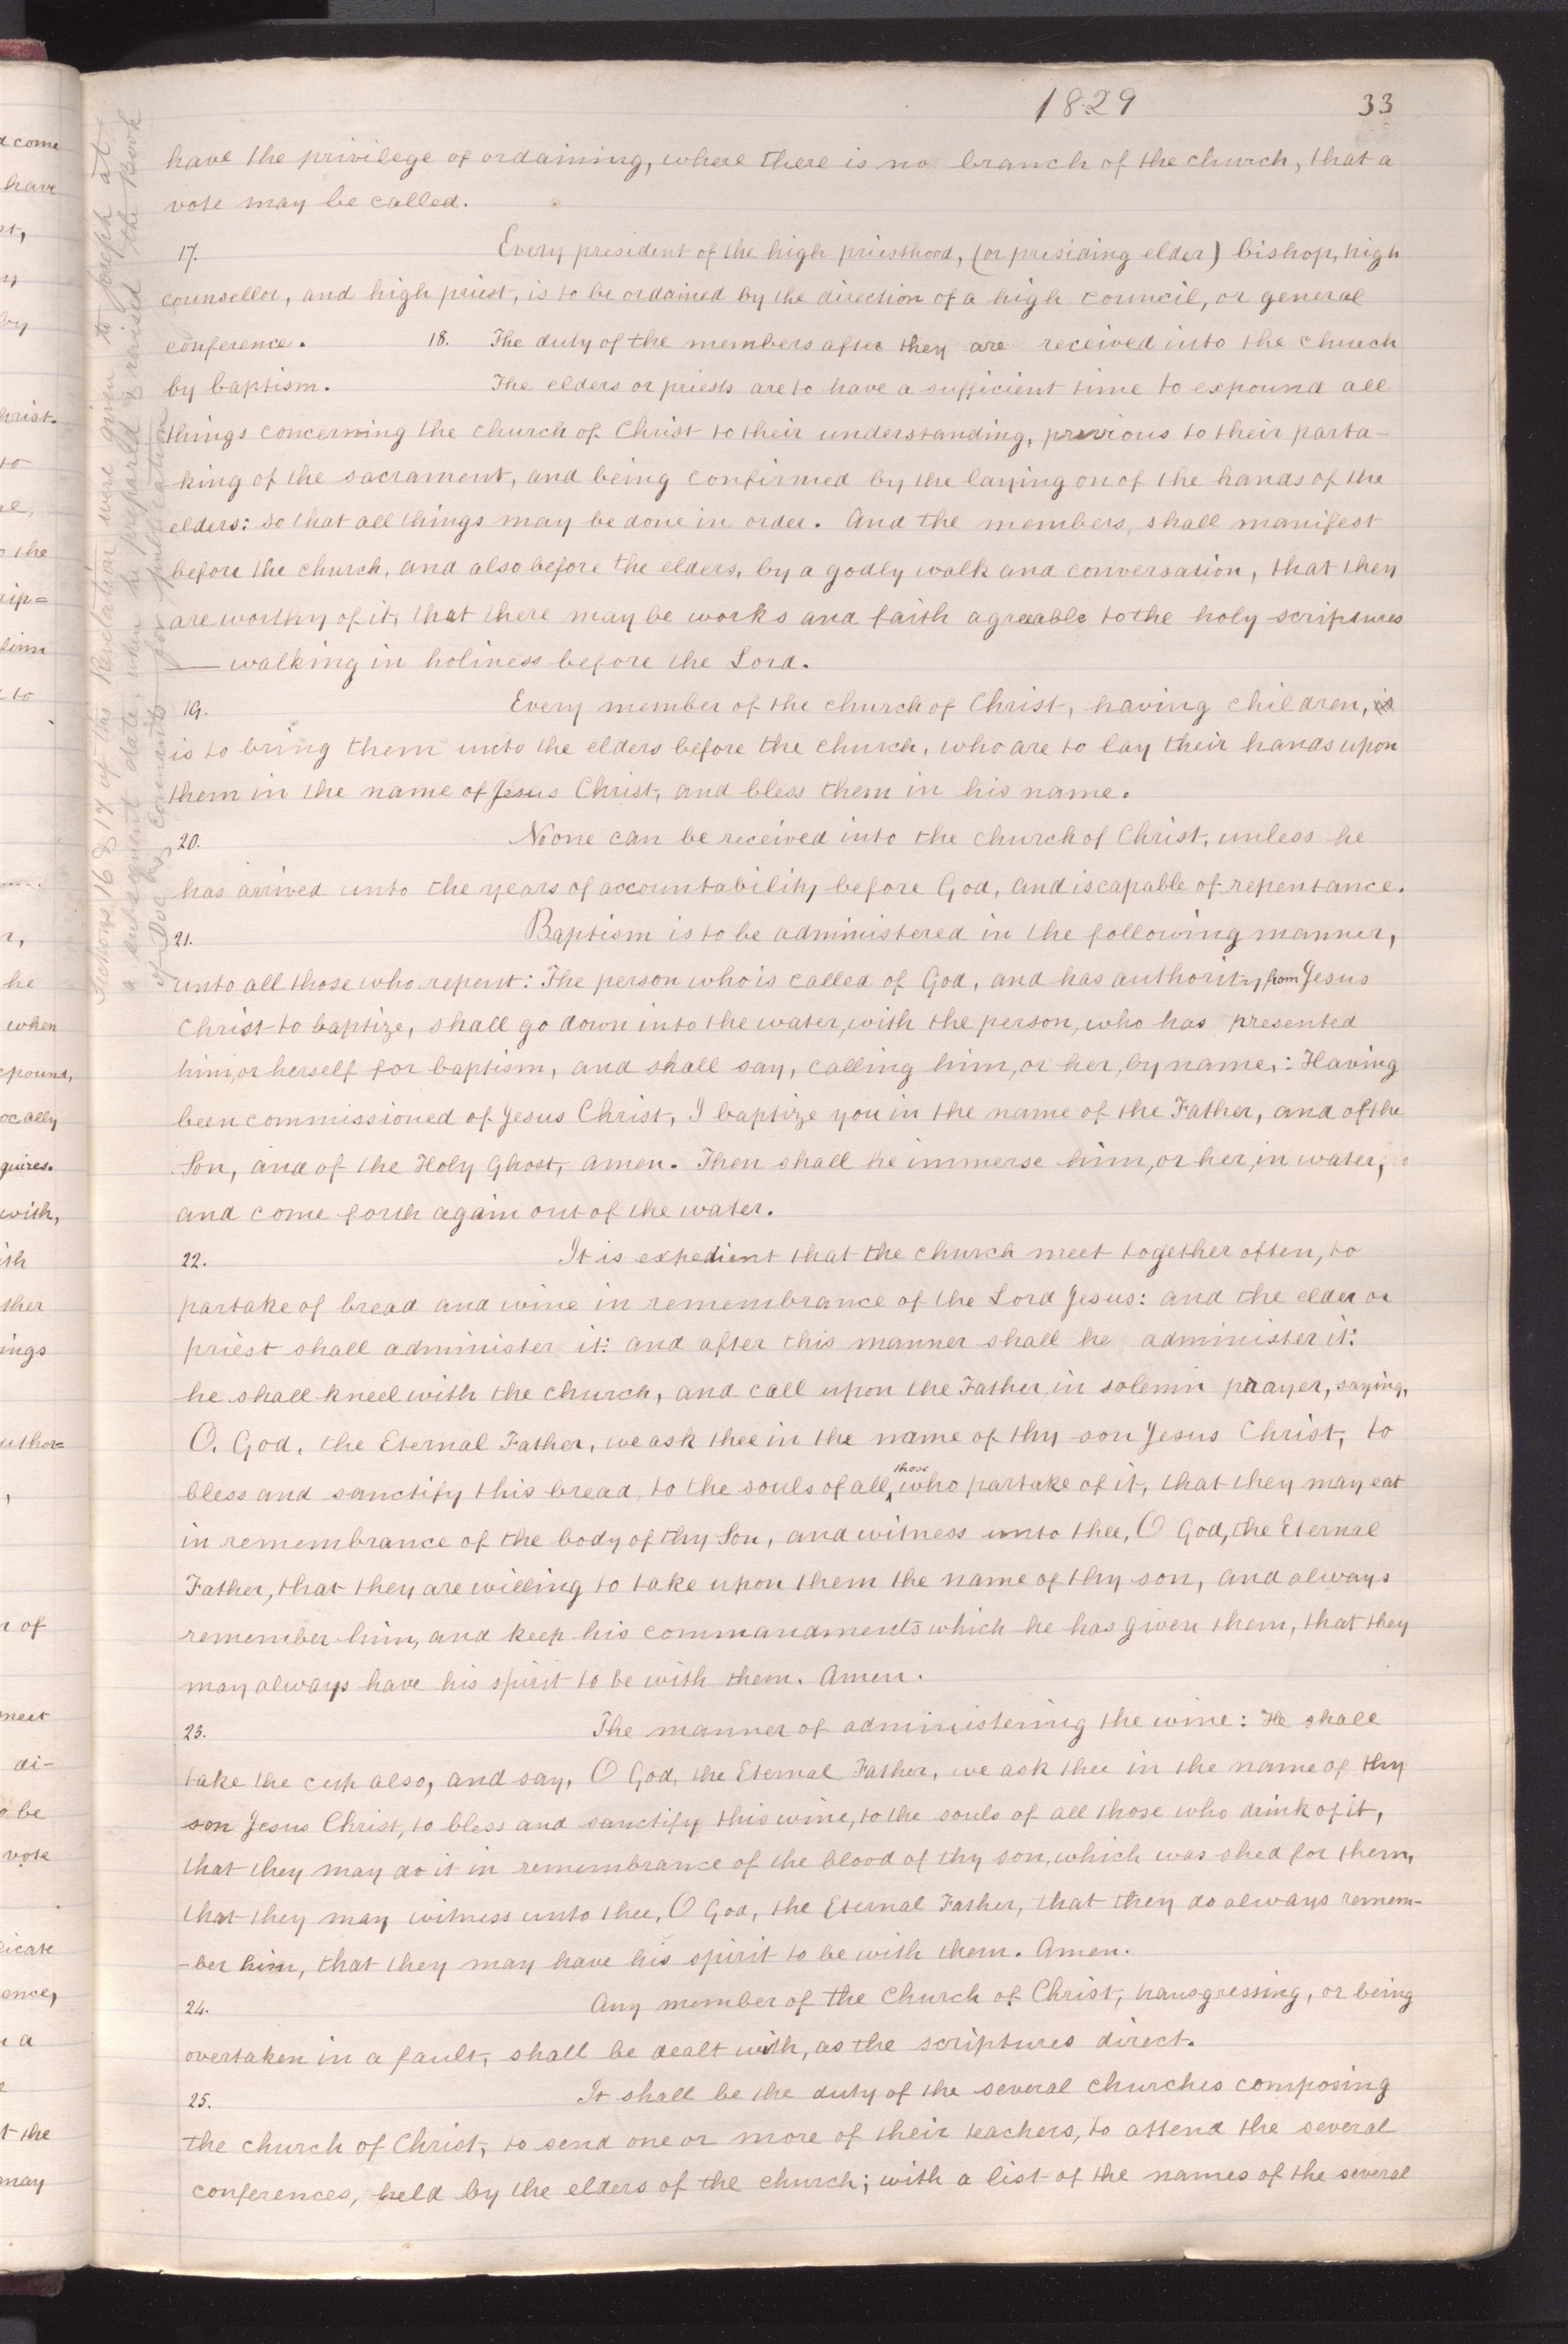 1829 33
have the privilege of ordaining, where there is no branch of the church, that a
vote may be called.
17. Every president of the high priesthood, (or presiding elder) bishop, high
counsellor, and high priest, is to be ordained by the direction of a high council, or general
conference. 18. The duty of the members after they are received into the church
by baptism. The elders or priests are to have a sufficient time to expound all
things concerning the church of Christ to their understanding, previous to their parta-
king of the sacrament, and being confirmed by the laying on of the hands of the
elders: so that all things may be done in order. And the members, shall manifest
before the church, and also before the elders, by a godly walk and conversation, that they
are worthy of it, that there may be works and faith agreeable to the holy scriptures
— walking in holiness before the Lord.
19. Every member of the church of Christ, having children, is
is to bring them unto the elders before the church, who are to lay their hands upon
them in the name of Jesus Christ, and bless them in his name.
20. No one can be received into the church of Christ, unless he
has arrived unto the years of accountability before God, and is capable of repentance.
21. Baptism is to be administered in the following manner,
unto all those who repent: The person who is called of God, and has authority from Jesus
Christ to baptize, shall go down into the water, with the person, who has presented
him, or herself for baptism, and shall say, calling him, or her, by name,: Having
been commissioned of Jesus Christ, I baptize you in the name of the Father, and of the
Son, and of the Holy Ghost, amen. Then shall he immerse him, or her, in water,
and come forth again out of the water.
22. It is expedient that the church meet together often, to
partake of bread and wine in remembrance of the Lord Jesus: and the elder or
priest shall administer it: and after this manner shall he administer it:
he shall kneel with the church, and call upon the Father in solemn prayer, saying,
O, God, the Eternal Father, we ask thee in the name of thy son Jesus Christ, to
bless and sanctify this bread, to the souls of all those who partake of it, that they may eat
in remembrance of the body of thy Son, and witness unto thee, O God, the Eternal
Father, that they are willing to take upon them the name of thy son, and always
remember him, and keep his commandments which he has given them, that they
may always have his spirit to be with them. Amen.
23. The manner of administering the wine: He shall
take the cup also, and say, O God, the Eternal Father, we ask thee in the name of thy
son Jesus Christ, to bless and sanctify this wine, to the souls of all those who drink of it,
that they may do it in remembrance of the blood of thy son, which was shed for them,
that they may witness unto thee, O God, the Eternal Father, that they do always remem-
-ber him, that they may have his spirit to be with them. Amen.
24. Any member of the Church of Christ, transgressing, or being
overtaken in a fault, shall be dealt with, as the scriptures direct.
25. It shall be the duty of the several churches composing
the church of Christ, to send one or more of their teachers, to attend the several
conferences, held by the elders of the church; with a list of the names of the several
Sections 16 & 17 of this Revelation were given to Joseph at
a subsequent date, when he prepared & revised the Book
of Doc & Covenants for publication